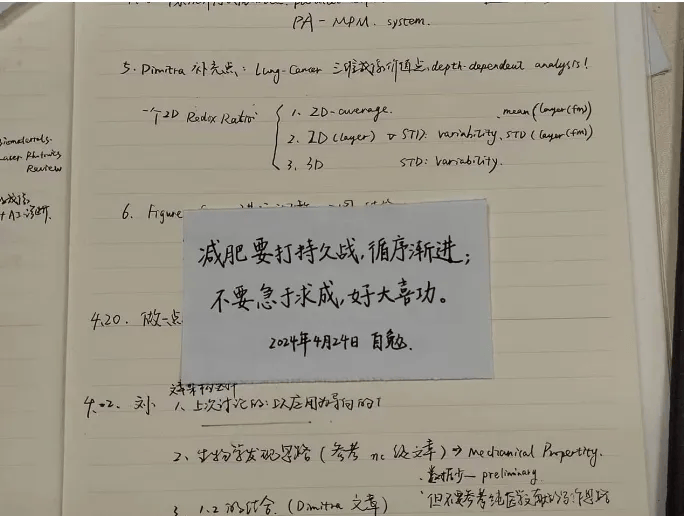 PA-MPM. system.
5. Dimitra 补充点: Lung-Cancer 三维成像价值点, depth-dependent analysis!
一个2D Redox Ratio:
1. 2D-average. mean(layer(fm))
2. 2D(layer) STD: variability. STD(layer(fm))
3. 3D STD: variability.
Biomaterials.
Laser Photonics
Review
6. Figure
减肥要打持久战,循序渐进;
不要急于求成,好大喜功。
2024年4月24日 自勉.
4.20. 做一点
刘 1. 上次讨论的: 以应用为导向的
2. 生物学发现思路 (参考 nc 经文章) → Mechanical Propertity.
数据少 — preliminary
3 1.2 的结合. (Dimitra 文章)